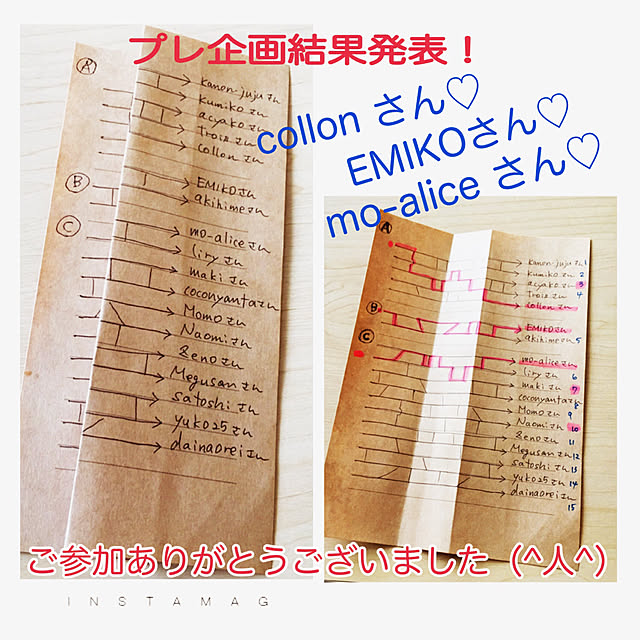 プレ企画結果発表！
collon さん♡
EMIKOさん♡
mo-alice さん♡
Ⓐ
kanon-jujuさん
kumikoさん
acyakoさん
Troisさん
collonさん
Ⓑ
EMIKOさん
akihimeさん
Ⓒ
mo-aliceさん
liryさん
makiさん
coconyantaさん
Momoさん
Naomiさん
Megusanさん
satoshiさん
yuko25さん
dainaoreiさん
Ⓐ
kanon-jujuさん 1
kumikoさん 2
acyakoさん 3
Troisさん 4
collonさん
Ⓑ
EMIKOさん
akihimeさん 5
Ⓒ
mo-aliceさん
liryさん 6
makiさん 7
coconyantaさん 8
Momoさん 9
Naomiさん 10
11
Megusanさん 12
satoshiさん 13
yuko25さん 14
dainaoreiさん
15
ご参加ありがとうございました（^人^）
INSTAMAG